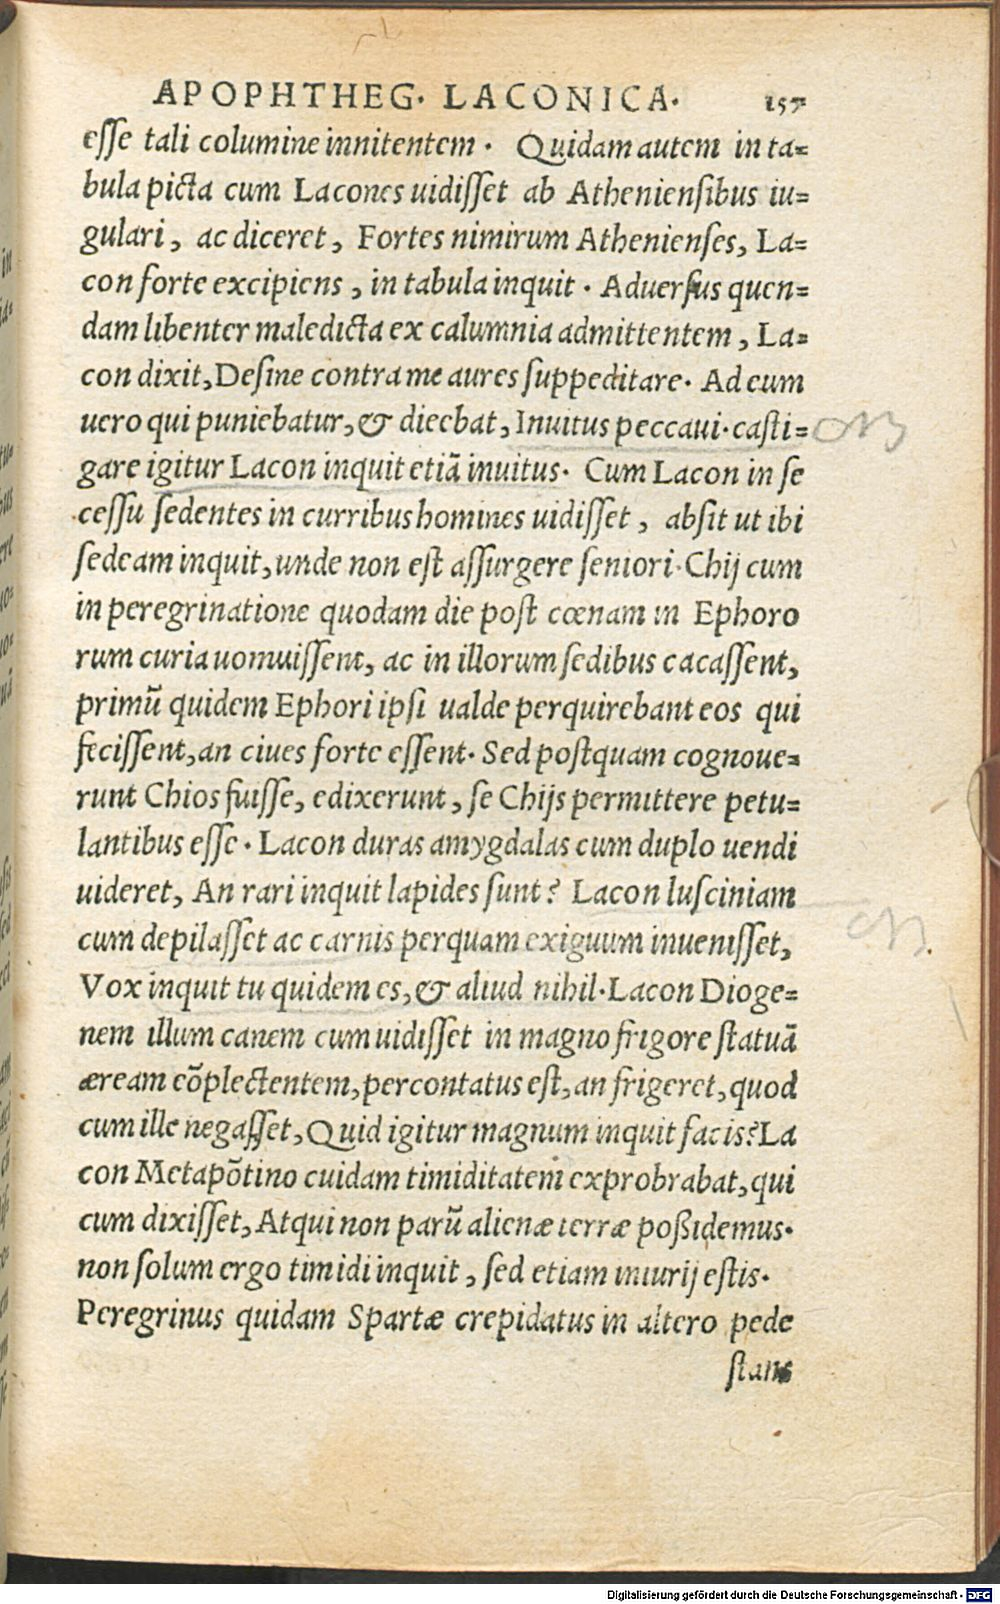 APOPHTHEG. LACONICA. 157
esse tali columine innitentem. Quidam autem in ta=
bula picta cum Lacones uidisset ab Atheniensibus iu=
gulari, ac diceret, Fortes nimirum Athenienses, La=
con forte excipiens, in tabula inquit. Aduersus quen=
dam libenter maledicta ex calumnia admittentem, La=
con dixit, Desine contra me aures suppeditare. Ad eum
uero qui puniebatur, & dicebat, Inuitus peccaui. casti=
gare igitur Lacon inquit etiã inuitus. Cum Lacon in se
cessu sedentes in curribus homines uidisset, absit ut ibi
sedeam inquit, unde non est assurgere seniori. Chij cum
in peregrinatione quodam die post cœnam in Ephoro
rum curia uomuissent, ac in illorum sedibus cacassent,
primũ quidem Ephori ipsi ualde perquirebant eos qui
fecissent, an ciues forte essent. Sed postquam cognoue=
runt Chios fuisse, edixerunt, se Chijs permittere petu=
lantibus esse. Lacon duras amygdalas cum duplo uendi
uideret, An rari inquit lapides sunt? Lacon lusciniam
cum depilasset ac carnis perquam exiguum inuenisset,
Vox inquit tu quidem es, & aliud nihil. Lacon Dioge=
nem illum canem cum uidisset in magno frigore statuã
æream cõplectentem, percontatus est, an frigeret, quod
cum ille negasset, Quid igitur magnum inquit facis? La
con Metapõtino cuidam timiditatem exprobrabat, qui
cum dixisset, Atqui non parũ alienæ terræ poßidemus.
non solum ergo timidi inquit, sed etiam iniurij estis.
Peregrinus quidam Spartæ crepidatus in altero pede
stans
Digitalisierung gefördert durch die Deutsche Forschungsgemeinschaft - DFG